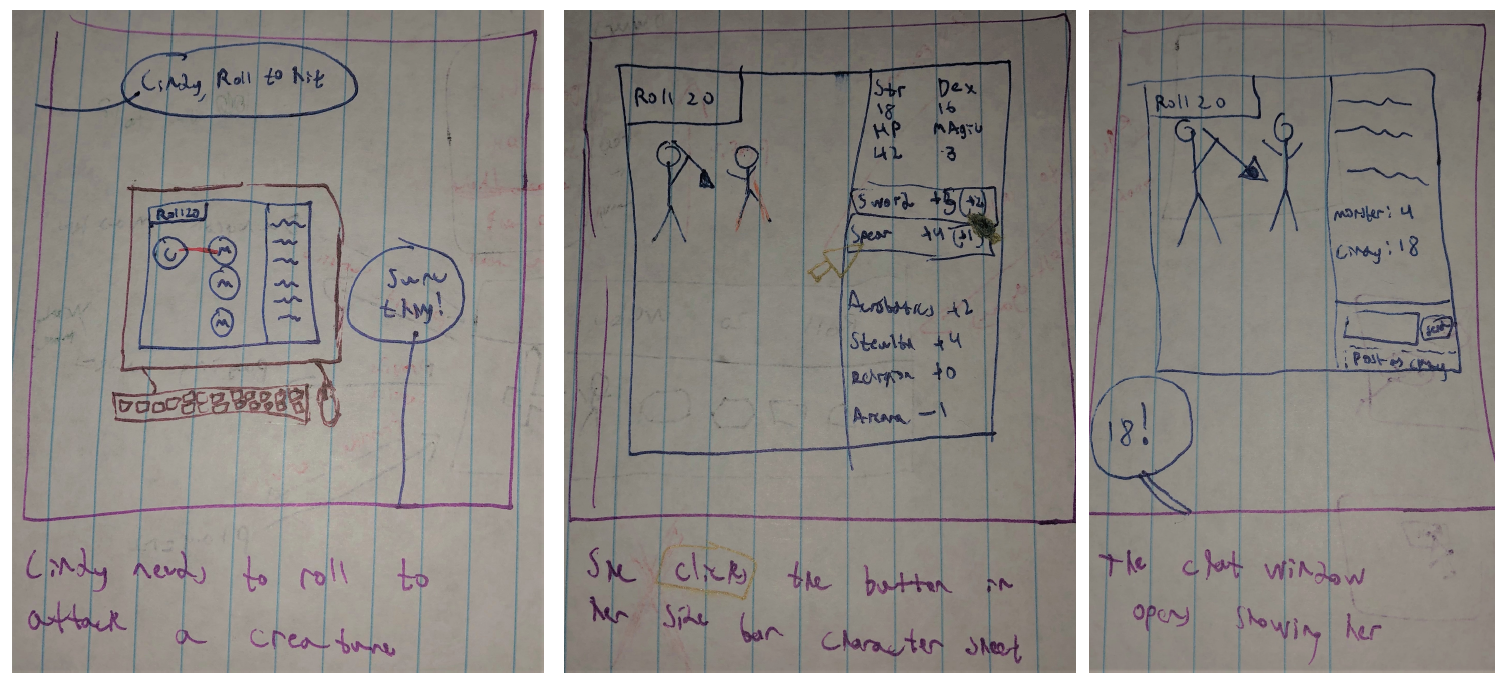 Cindy, Roll to hit
Roll20
C
M
M
M
Sure
thing!
Cindy needs to roll to
attack a creature
Roll 20
Str Dex
18 16
HP Magic
42 -3
Sword +5 (+2)
Spear +4 (+1)
Acrobatics +2
Stealth +4
Religion +0
Arcana -1
She clicks the button in
her side bar character sheet
Roll 20
monster: 4
Cindy: 18
send
Post as Cindy
18!
The chat window
opens showing her